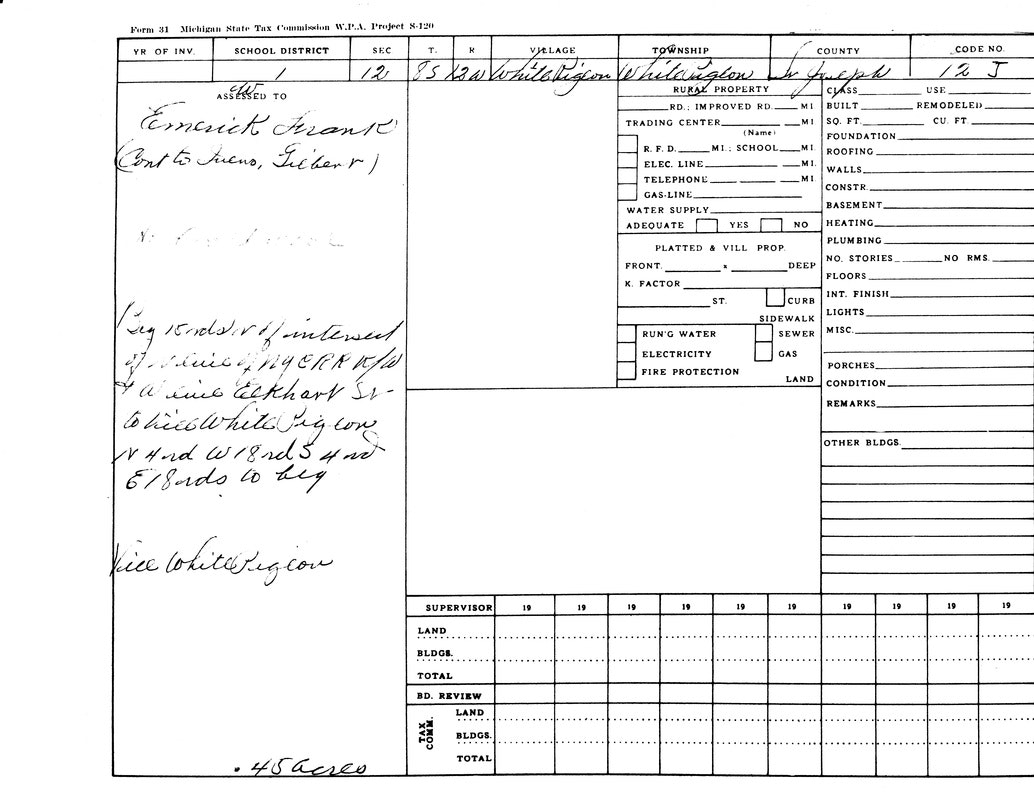 Form 31 Michigan State Tax Commission W.P.A. Project S-120
YR OF INV. SCHOOL DISTRICT SEC T. R VILLAGE TOWNSHIP COUNTY CODE NO.
1 12 8S 12W White Pigeon White Pigeon St Joseph 12 J
ASSESSED TO
Emerick Frank
(Cont to Gilbert)
Beg 15 rds N of intersect
of N line of NYCRR R/W
& W line Elkhart St
to Vill White Pigeon
N 4 rd W 18 rd S 4 rd
E 18 rds to beg
Vill White Pigeon
.45 acres
RURAL PROPERTY
RD.; IMPROVED RD. MI
TRADING CENTER MI.
(Name)
R. F. D. MI.; SCHOOL MI.
ELEC. LINE MI.
TELEPHONE MI.
GAS-LINE
WATER SUPPLY
ADEQUATE YES NO
PLATTED & VILL PROP.
FRONT. x DEEP
K. FACTOR
ST. CURB
SIDEWALK
RUN'G WATER SEWER
ELECTRICITY GAS
FIRE PROTECTION
LAND
CLASS USE
BUILT REMODELED
SQ. FT. CU. FT.
FOUNDATION
ROOFING
WALLS
CONSTR.
BASEMENT
HEATING
PLUMBING
NO. STORIES NO RMS.
FLOORS
INT. FINISH
LIGHTS
MISC.
PORCHES
CONDITION
REMARKS
OTHER BLDGS.
SUPERVISOR 19 19 19 19 19 19 19 19 19 19
LAND
BLDGS.
TOTAL
BD. REVIEW
TAX COMM.
LAND
BLDGS.
TOTAL